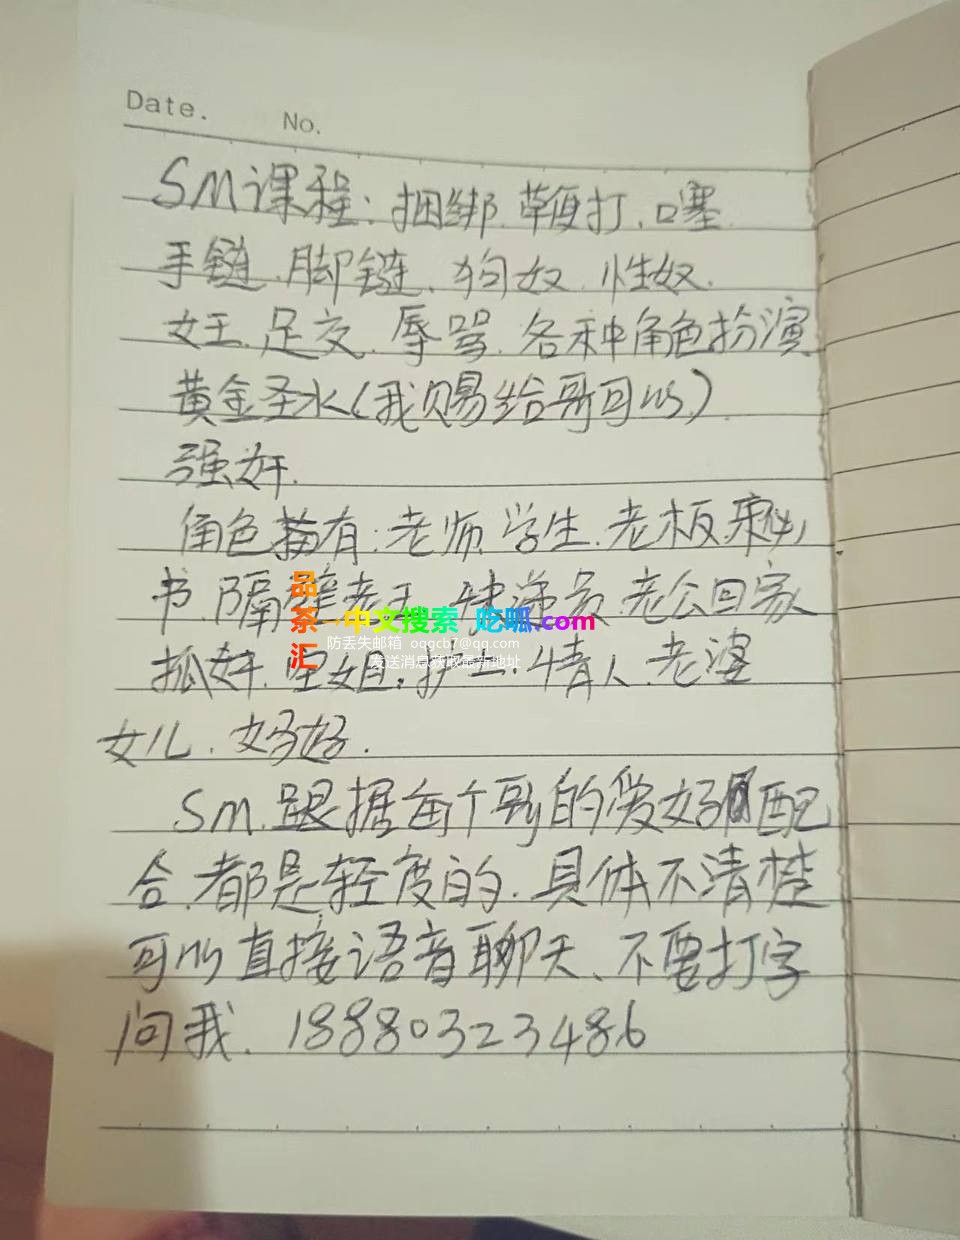 Date. No.
SM课程：捆绑.鞭打.口塞.
手链.脚链.狗奴.性奴.
女王.足交.辱骂.各种角色扮演
黄金圣水(我赐给哥可以).
强奸.
角色扮有：老师.学生.老板.秘
书.隔壁老王.快递员.老公回家
抓奸.空姐.护士.情人.老婆
女儿.妈妈.
Sm.跟据每个哥的爱好配
合.都是轻度的.具体不清楚
可以直接语音聊天、不要打字
问我.18880323486
品茶汇
中文搜索 吃呱.com
防丢失邮箱 oqgcb7@qq.com
发送消息获取最新地址